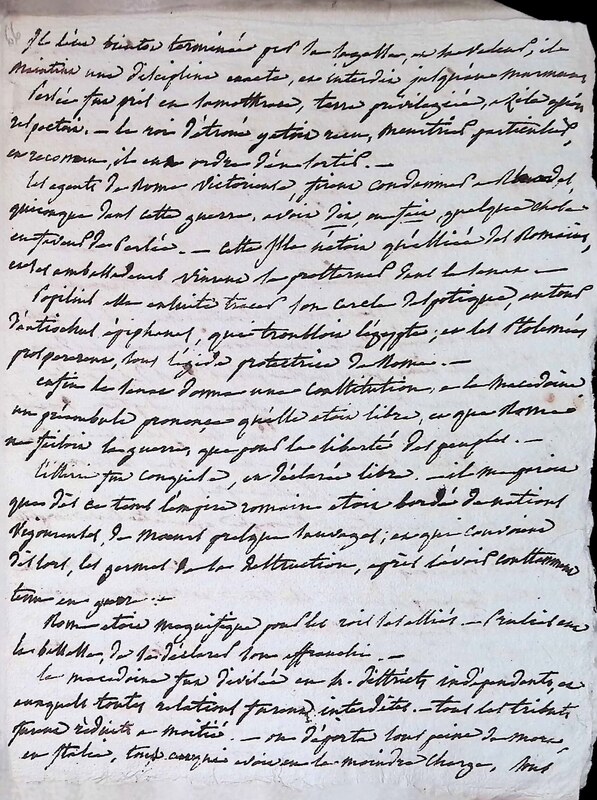 66
Il sera bientôt terminée par la sagesse, et la valeur, il
maintint une discipline exacte, en interdit jusqu'aux murmures
Persée fut pris en Samothrace, terre privilégiée, et l'on
respectoit. — le roi d'étrusie
en reconnu, il eut ordre d'en sortir. —
les agents de Rome victorieuse firent condamner à Rhodes,
quiconque dans cette guerre, avoit dit ou fait, quelque chose
en faveur de Persée. — cette isle n'etoit qu'alliée des Romains,
et ses ambassadeurs vinrent se prosterner dans le senat —
Popilius alla ensuite tracer son cercle despotique, autour
d'antiochus épiphanes, qui troubloit l'égypte; et les ptolemées
prospererent, sous l'égide protectrice de Rome. —
enfin le senat donna une constitution, a la Macedoine
un préambule prononça qu'elle etoit libre, et que Rome
ne faisoit la guerre, que pour la liberté des peuples. —
l'illirie fut conquise, et déclarée libre. — il me paroit
que dès ce tems l'empire romain etoit bordé de nations
vigoureuses, de mœurs presque sauvages; et qui couvoient
dès lors, les germes de la destruction, après l'avoir constamment
tenu en guerre. —
Rome etoit magnifique pour les rois ses alliés. — Prusias eut
la bassesse, de se déclarer son affranchi. —
la macedoine fut divisée en 4. districts indépendants, et
auxquels toutes relations furent interdites. — tous les tributs
furent réduits a moitié. — on déporta sous peine de mort,
en Italie, tous ceux qui avoient eu la moindre charge, sous